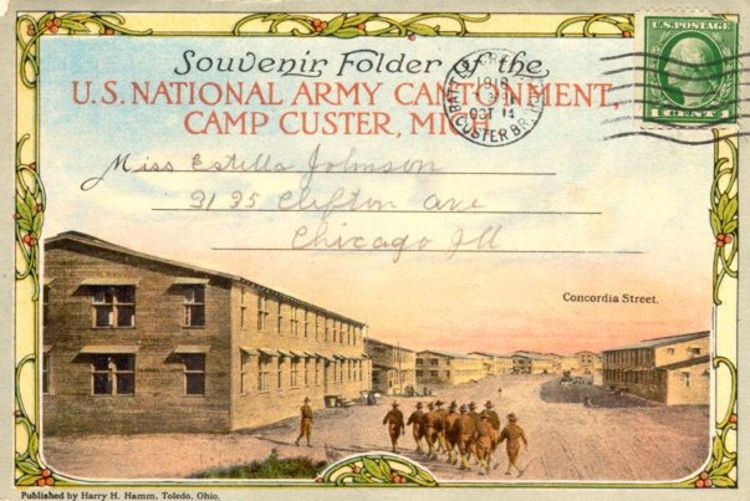 Souvenir Folder of the
U.S. NATIONAL ARMY CANTONMENT,
CAMP CUSTER, MICH
U.S. POSTAGE
1 CENT
BATTLE CREEK, MICH.
OCT 14
CUSTER BR.
Miss Estella Johnson
3135 Clifton Ave
Chicago Ill
Concordia Street.
Published by Harry H. Hamm, Toledo, Ohio.